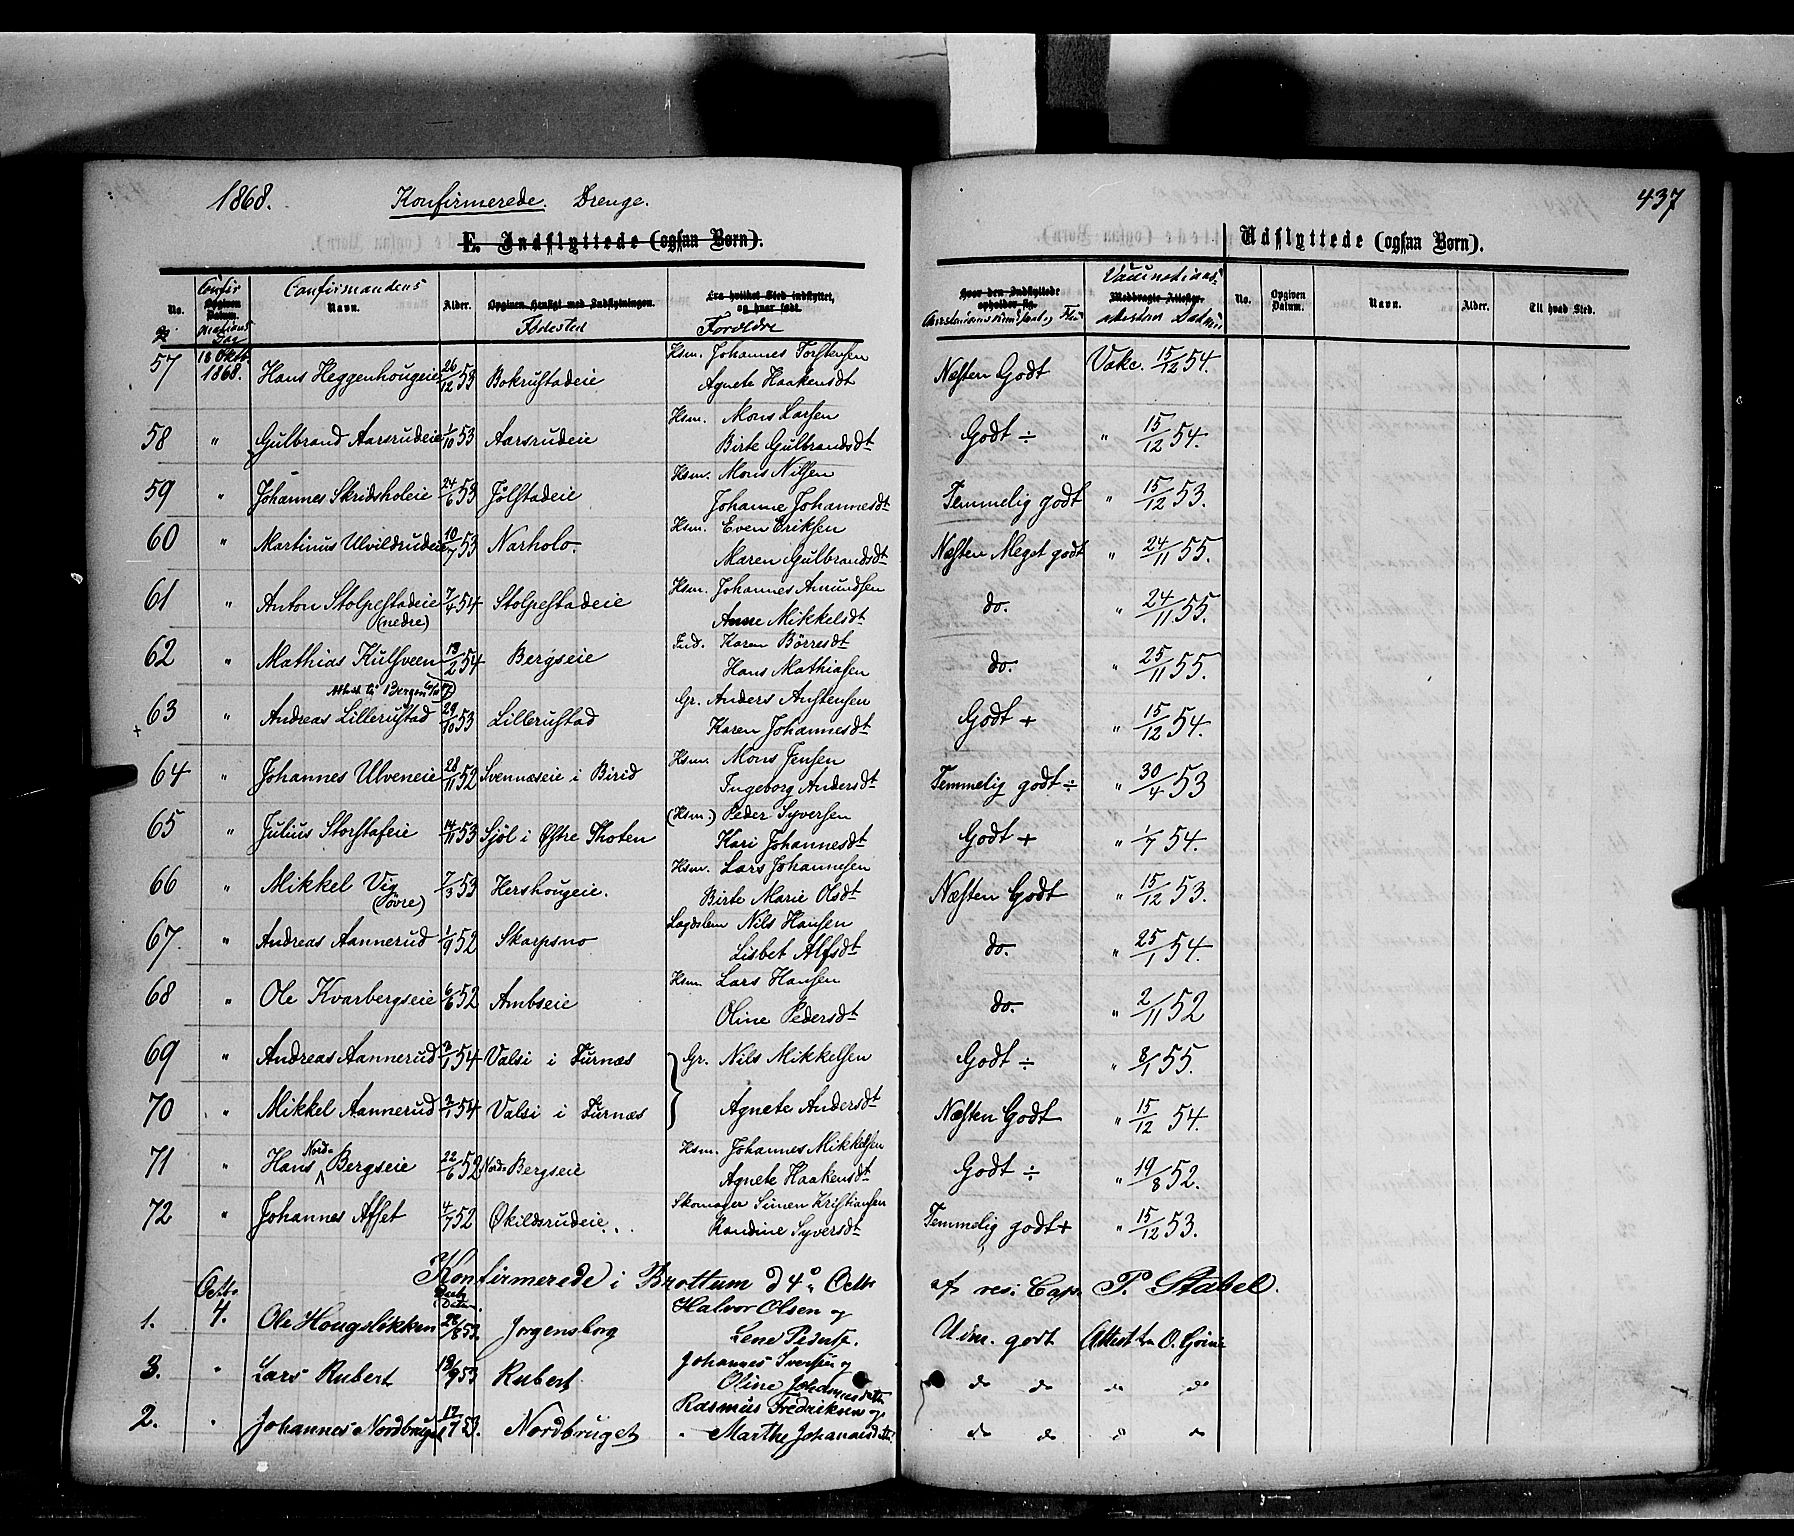 1868. Konfirmerede. Drenge. 437
E. Indflyttede (ogsaa Børn). Udflyttede (ogsaa Børn).
No. Confirmations Dag Opgiven Datum. Confirmandens Navn. Alder. Opgiven Hensigt med Indflytningen. Fødested Fra hvilket Sted indflyttet, og hvor født. Forældre Hvor den Indflyttede opholder sig. Medbragte Attester. No. Opgiven Datum. Navn. Alder. Til hvad Sted.
57 18 Oktb. 1868. Hans Heggenhougeie 26/12 53 Bokrustadeie Hsm. Johannes Torstensen Næsten Godt Vakc. 15/12 54.
Agnete Haakensdt
58 " Gulbrand Aarsrudeie 1/10 53 Aarsrudeie Hsm. Mons Larsen Godt ÷ " 15/12 54.
Birte Gulbrandsdt
59 " Johannes Skridsholeie 24/6 53 Jølstadeie Hsm. Mons Nilsen Temmelig godt " 15/12 53.
Johanne Johannesdt
60 " Martinus Ulvildrudeie 10/7 53 Narholo. Hsm. Even Eriksen Næsten Meget godt " 24/11 55.
Maren Gulbrandsdt
61 " Anton Stolpestadeie (nedre) 7/4 54 Stolpestadeie Hsm. Johannes Amundsen do. " 24/11 55.
Anne Mikkelsdt
62 " Mathias Kulsveen 18/2 54 Bergseie Ind. Karen Børresdt do. " 25/11 55.
Hans Mathiasen
63 " Andreas Lillerustad 29/10 53 Lillerustad Gr. Anders Anstensen Godt + " 15/12 54.
+ Karen Johannesdt
64 " Johannes Ulveneie 28/11 52 Svennæseie i Birid Hsm. Mons Jensen Temmelig godt ÷ " 30/4 53
Ingeborg Andersdt
65 " Julius Storstafeie 14/11 53 Sjøl i Østre Thoten (Hsm.) Peder Syversen Godt + " 1/7 54.
Kari Johannesdt
66 " Mikkel Vig (øvre) 7/3 53 Hershougeie. Hsm. Lars Johannesen Næsten Godt " 15/12 53.
Birte Marie Olsdt
67. " Andreas Aannerud 1/9 52 Skarpsno Lægdslem Nils Hansen do. " 25/1 54.
Lisbet Alfsdt
68 " Ole Kvarbergseie 6/6 52 Ambseie Hsm Lars Hansen do. " 2/11 52
Oline Pedersdt
69 " Andreas Aannerud 2/1 54 Valsi i Furnæs Gr. Nils Mikkelsen Godt ÷ " 8/1 55.
70 " Mikkel Aannerud 2/1 54 Valsi i Furnæs Agnete Andersdt Næsten Godt " 15/12 54.
71 " Hans Nord-Bergseie 22/6 52 Nord-Bergseie Hsm. Johannes Mikkelsen Godt ÷ " 19/8 52.
Agnete Haakensdt
72 " Johannes Afset 4/7 52 Økildsrudeie. Skomager Simen Kristiansen Temmelig godt + " 15/12 53.
Randine Syversdt
Konfirmerede i Brøttum d 4. Octb af res: Cap. P. Stabel.
1. Octb. 4. Ole Hougsløkken 28/8 53. Jørgensborg Halvor Olsen og Udm. godt Attest fra
Lene Pedersd.
3. " Lars Rubert 18/9 53 Rubert Johannes Iversen og do do do do
Oline Johannesdatter
2. " Johannes Nordbruget 17/7 53. Nordbruget Rasmus Fredriksen og do do do do
Marthe Johannesdtr.